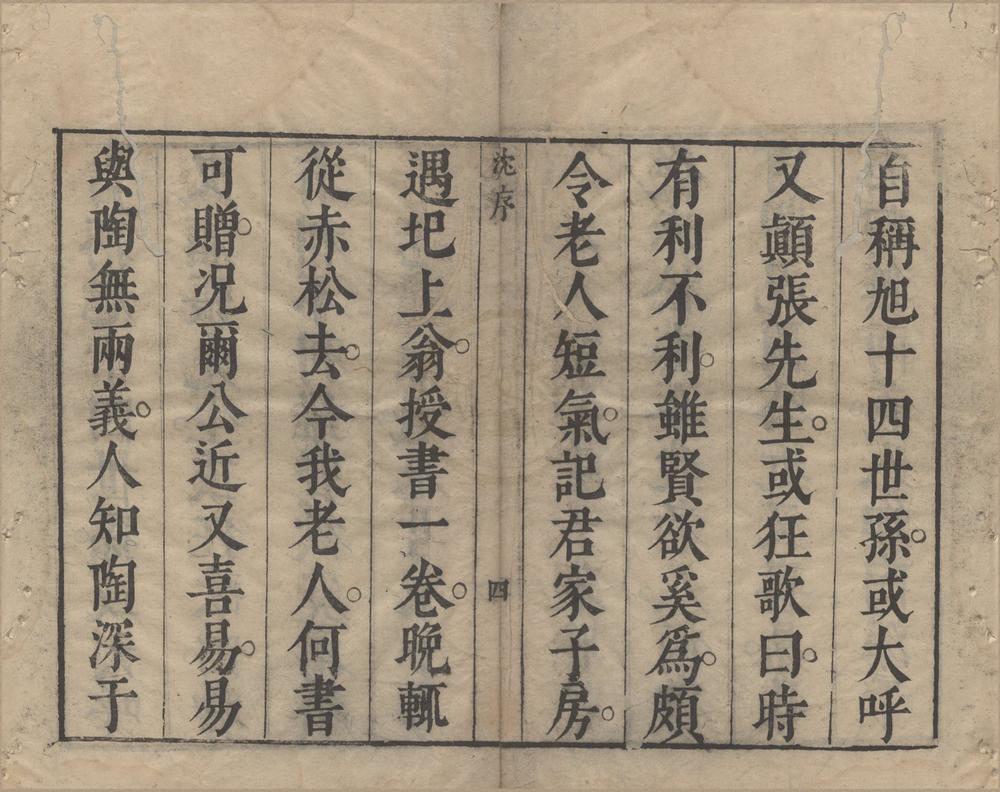 自稱旭十四世孫。或大呼
又顛張先生。或狂歌曰。時
有利不利。雖賢欲奚爲。頗
令老人短氣。記君家子房。
沈序
四
遇圯上翁。授書一卷。晩輒
從赤松去。今我老人。何書
可贈。况爾公近又喜易。易
與陶無兩義。人知陶深于